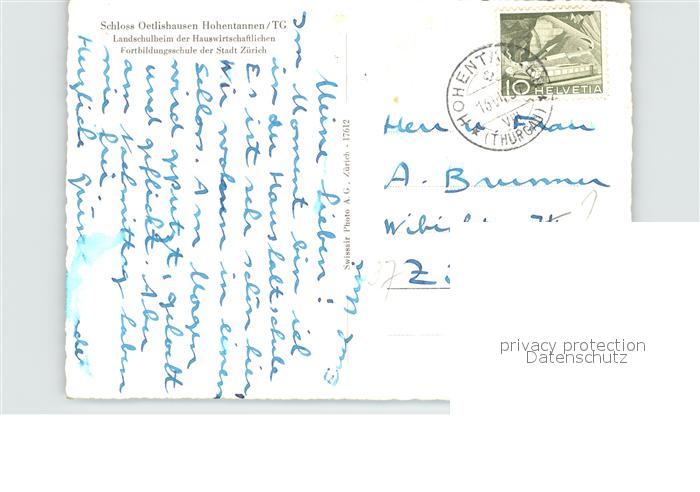 Schloss Oetlishausen Hohentannen/TG
Landschulheim der Hauswirtschaftlichen
Fortbildungsschule der Stadt Zürich
Meine Lieben!
Im Moment bin ich
in der Haushaltschule
Es ist sehr schön hier
Wir wohnen in einem
Schloss. Am Morgen
wird geputzt, gekocht
und geflickt. Aber
am Nachmittag haben
wir frei.
Herzliche Grüsse
Swissair Photo A. G., Zürich - 17612
10 HELVETIA
HOHENTANNEN
(THURGAU)
Herr u. Frau
A. Brunner
privacy protection
Datenschutz